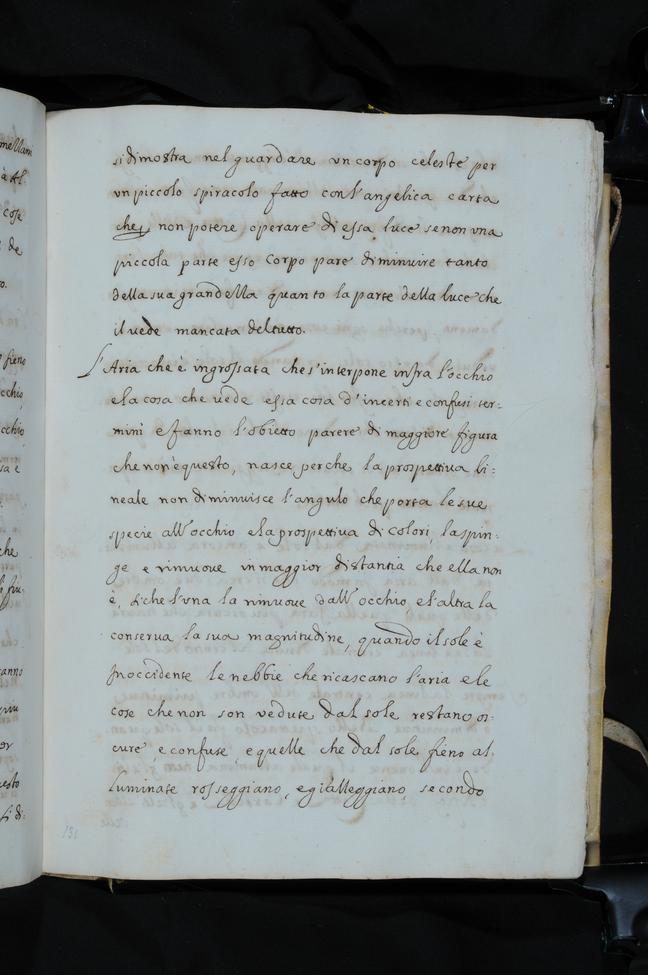 si dimostra nel guardare un corpo celeste per
un piccolo spiracolo fatto con l'angelica carta
che, non potere operare di essa luce se non una
piccola parte esso corpo pare diminuire tanto
della sua grandella quanto la parte della luce che
il vede mancata del tutto.
L'Aria che è ingrossata che s'interpone infra l'occhio
e la cosa che vede essa cosa d'incerti e confusi ter:
mini e fanno l'obietto parere di maggiore figura
che non è questo, nasce perche la prospettiva li:
neale non diminuisce l'angulo che porta le sue
specie all'occhio e la prospettiva di colori, la spin:
ge e rimuove in maggior distantia che ella non
è, si che l'una la rimuove dall'occhio, e l'altra la
conserva la sua magnitudine, quando il sole è
in occidente le nebbie che ricascano l'aria e le
cose che non son vedute dal sole restano os:
cure, e confuse, e quelle che dal sole fieno al
luminate rosseggiano, e gialleggiano, secondo
131
mellani
à Al
cose
de
o.
fieno
cchio
cchio
sa è
che
anno
or
esto
si di: